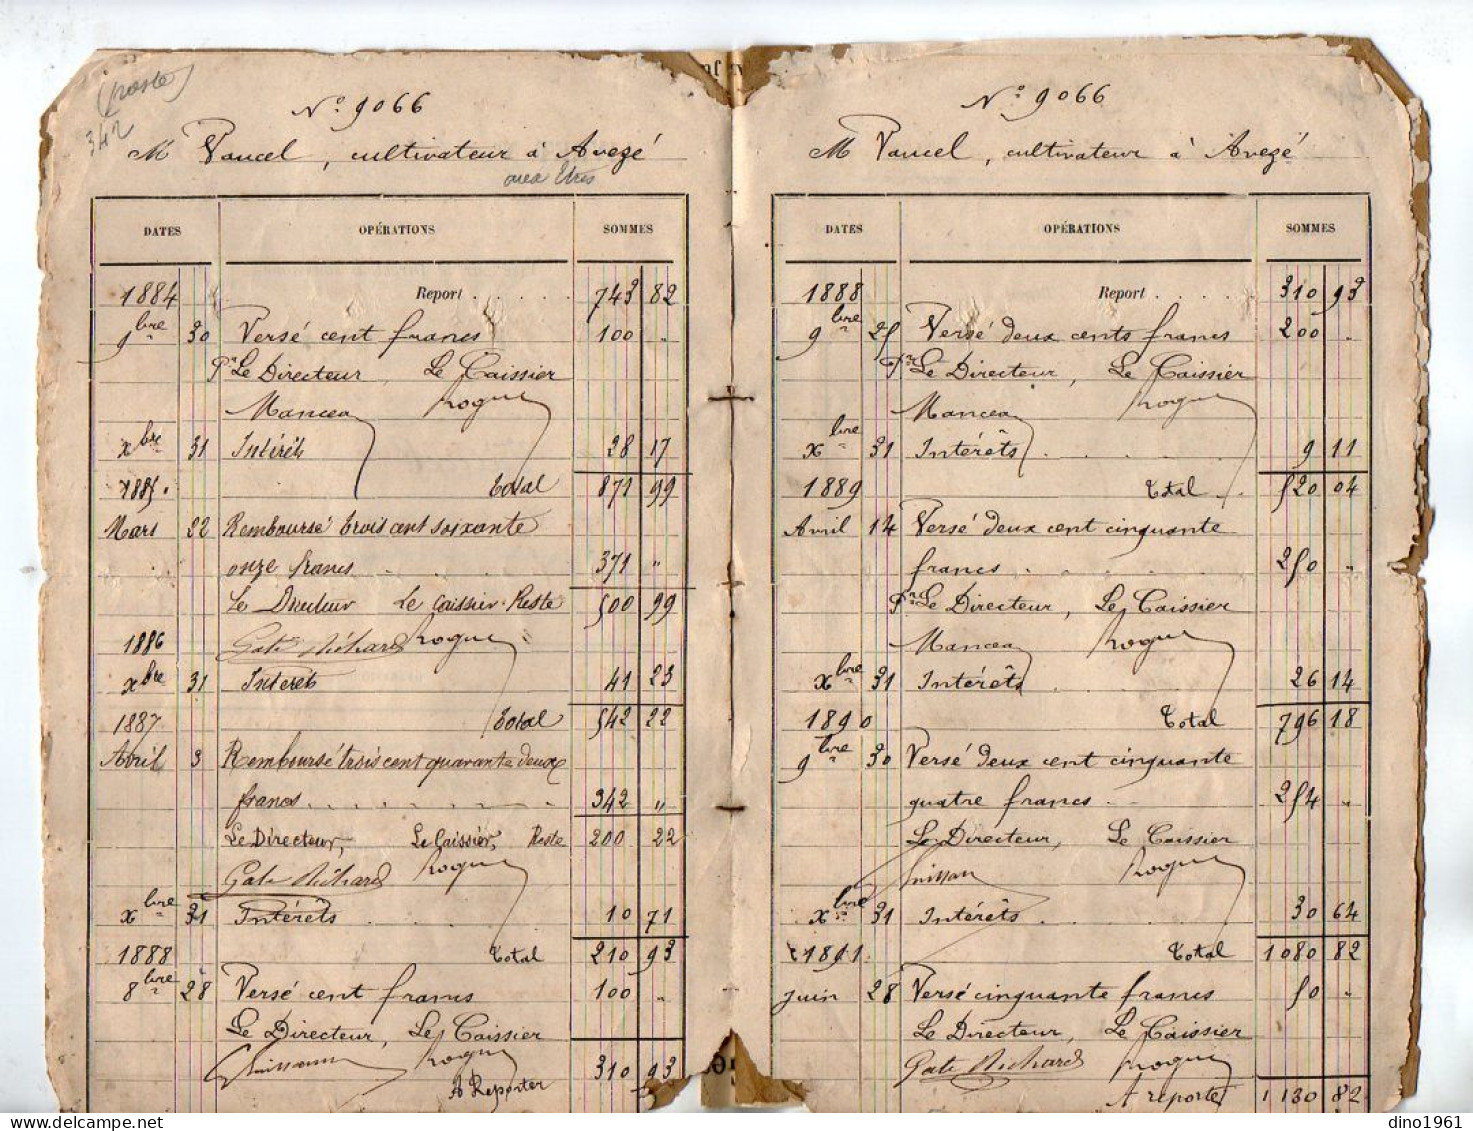 (reste)
342
N° 9066
M Vaucel, cultivateur à Avezé
aux Etres
DATES OPÉRATIONS SOMMES
1884 Report . . . . . 743 82
9bre 30 Versé cent francs 100 "
Pr Le Directeur, Le Caissier
Manceau Roque
Xbre 31 Intérêts 28 17
1885. Total 871 99
Mars 22 Remboursé trois cent soixante
onze francs . . . . 371 "
Le Directeur Le Caissier. Reste 500 99
1886 Richard Roque
Xbre 31 Intérêts 41 23
1887 Total 542 22
Avril 3 Remboursé trois cent quarante deux
francs . . . . . . 342 "
Le Directeur, Le Caissier, Reste 200 22
Richard Roque
Xbre 31 Intérêts . . . . 10 71
1888 Total 210 93
8bre 28 Versé cent francs 100 "
Le Directeur, Le Caissier
Roque 310 93
A Reporter
N° 9066
M Vaucel, cultivateur à Avezé
DATES OPÉRATIONS SOMMES
1888 Report . . . . . 310 93
9bre 25 Versé deux cents francs 200 "
Pr Le Directeur, Le Caissier
Manceau Roque
Xbre 31 Intérêts . . . . . 9 11
1889 Total . . 520 04
Avril 14 Versé deux cent cinquante
francs . . . . . 250 "
Pr Le Directeur, Le Caissier
Manceau Roque
Xbre 31 Intérêts . . . . 26 14
1890 Total 796 18
9bre 30 Versé deux cent cinquante
quatre francs . . 254 "
Le Directeur, Le Caissier
Roque
Xbre 31 Intérêts . . . . 30 64
1891 Total 1080 82
Juin 28 Versé cinquante francs 50 "
Le Directeur, Le Caissier
Richard Roque
A reporter 1130 82
dino1961